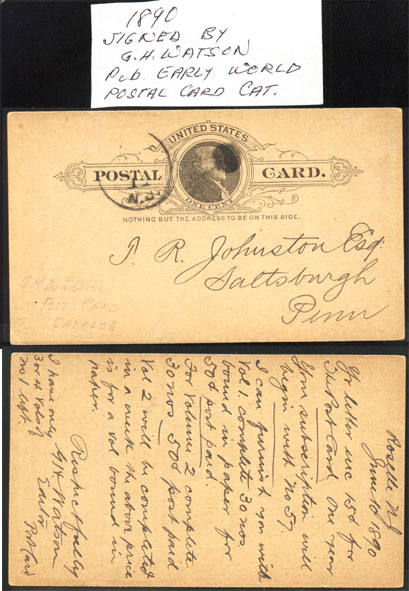 1890
SIGNED BY
G.H. WATSON
Pub. EARLY WORLD
POSTAL CARD CAT.
UNITED STATES
POSTAL CARD.
ONE CENT
NOTHING BUT THE ADDRESS TO BE ON THIS SIDE.
T. R. Johnston Esq
Saltsburgh
Penn
G H Watson
Post Card
Catalog
Roselle N J
June 10 1890
Yr letter inc 15¢ for
The Post Card one year
Your subscription will
begin with No 57.
I can furnish you with
Vol 1 complete 30 nos.
bound in paper for
50¢ post paid.
For Volume 2 complete
30 nos 50¢ post paid
Vol 2 will be completed
in a week the above price
is for a vol bound in
paper.
Respectfully
G H Watson
Editor
Post Card
I have only
3 or 4 Vols of
no 1 left.